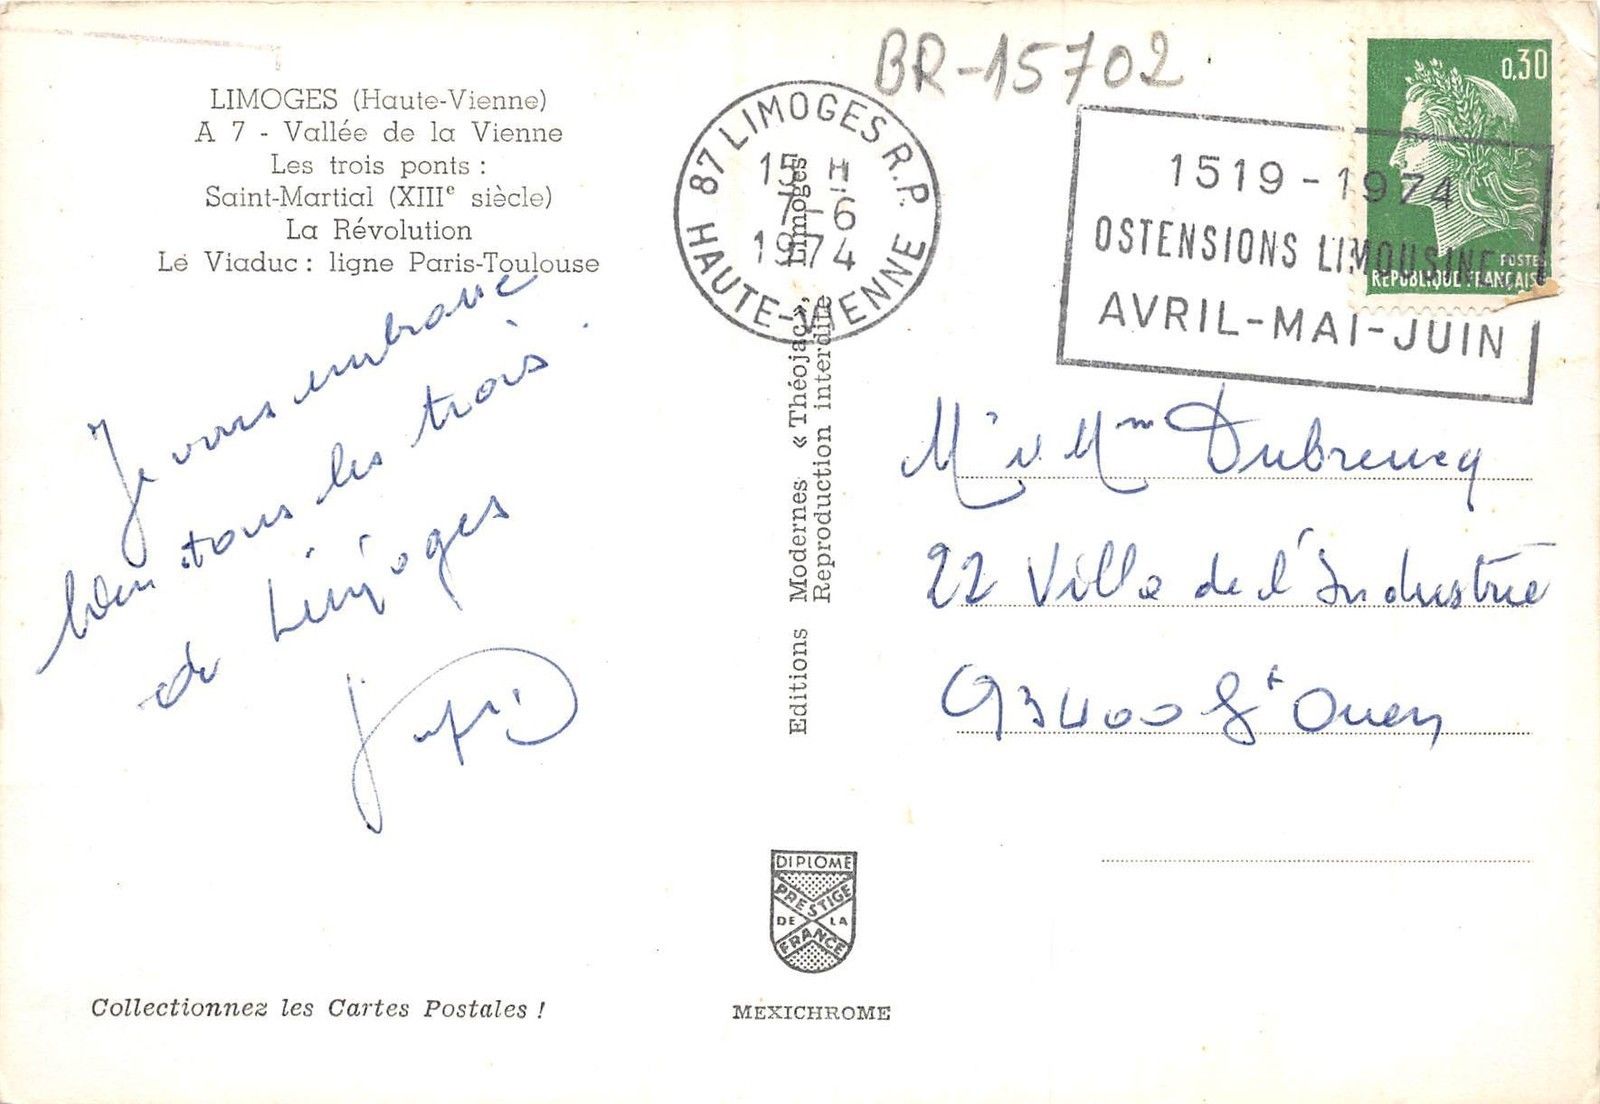 BR-15702
LIMOGES (Haute-Vienne)
A 7 - Vallée de la Vienne
Les trois ponts :
Saint-Martial (XIIIe siècle)
La Révolution
Le Viaduc : ligne Paris-Toulouse
Je vous embrasse
bien tous les trois.
de Limoges
87 LIMOGES R.P.
15 H
7-6
1974
HAUTE-VIENNE
1519 - 1974
OSTENSIONS LIMOUSINES
AVRIL-MAI-JUIN
0,30
POSTES
REPUBLIQUE FRANÇAISE
Editions Modernes « Théojac », Limoges
Reproduction interdite
Mr Mme Dubreucq
22 Villa de l'Industrie
93400 St Ouen
DIPLOME
PRESTIGE
DE LA
FRANCE
Collectionnez les Cartes Postales !
MEXICHROME